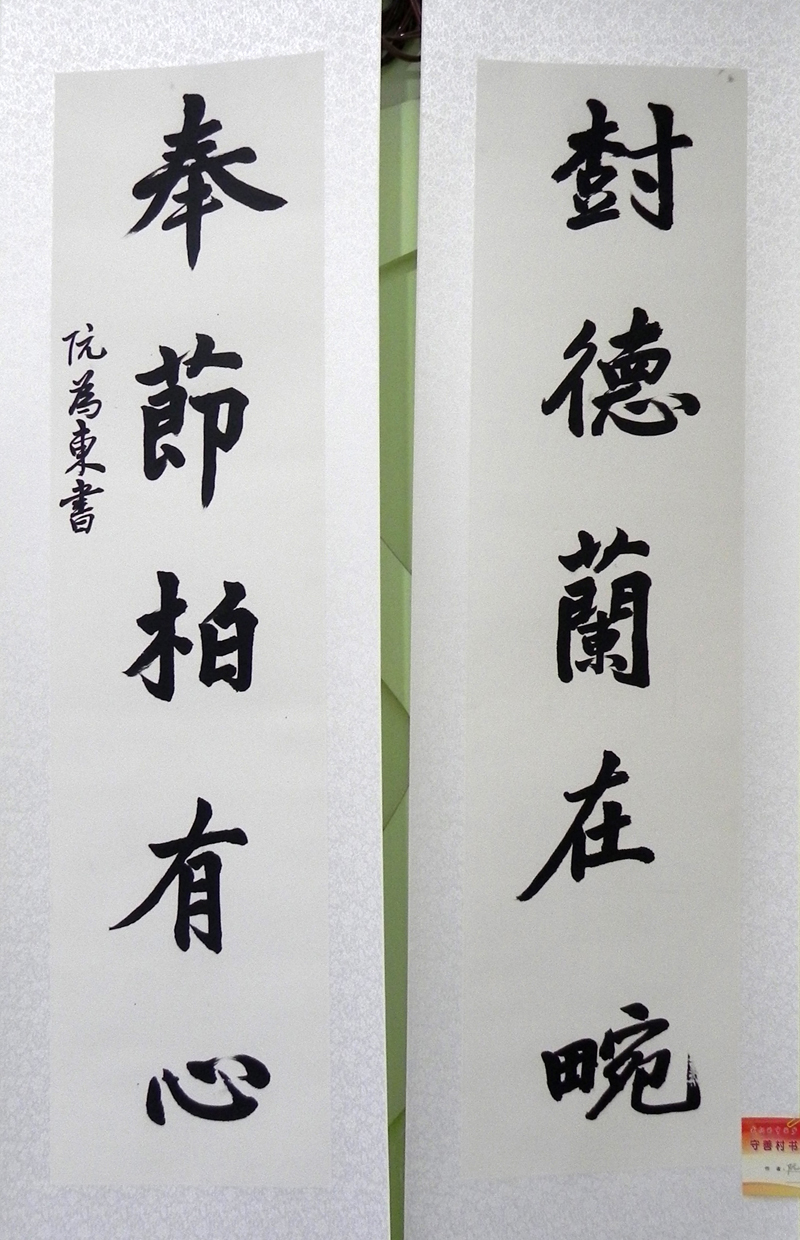 尌德蘭在畹
奉節柏有心
阮為東書
守善村书